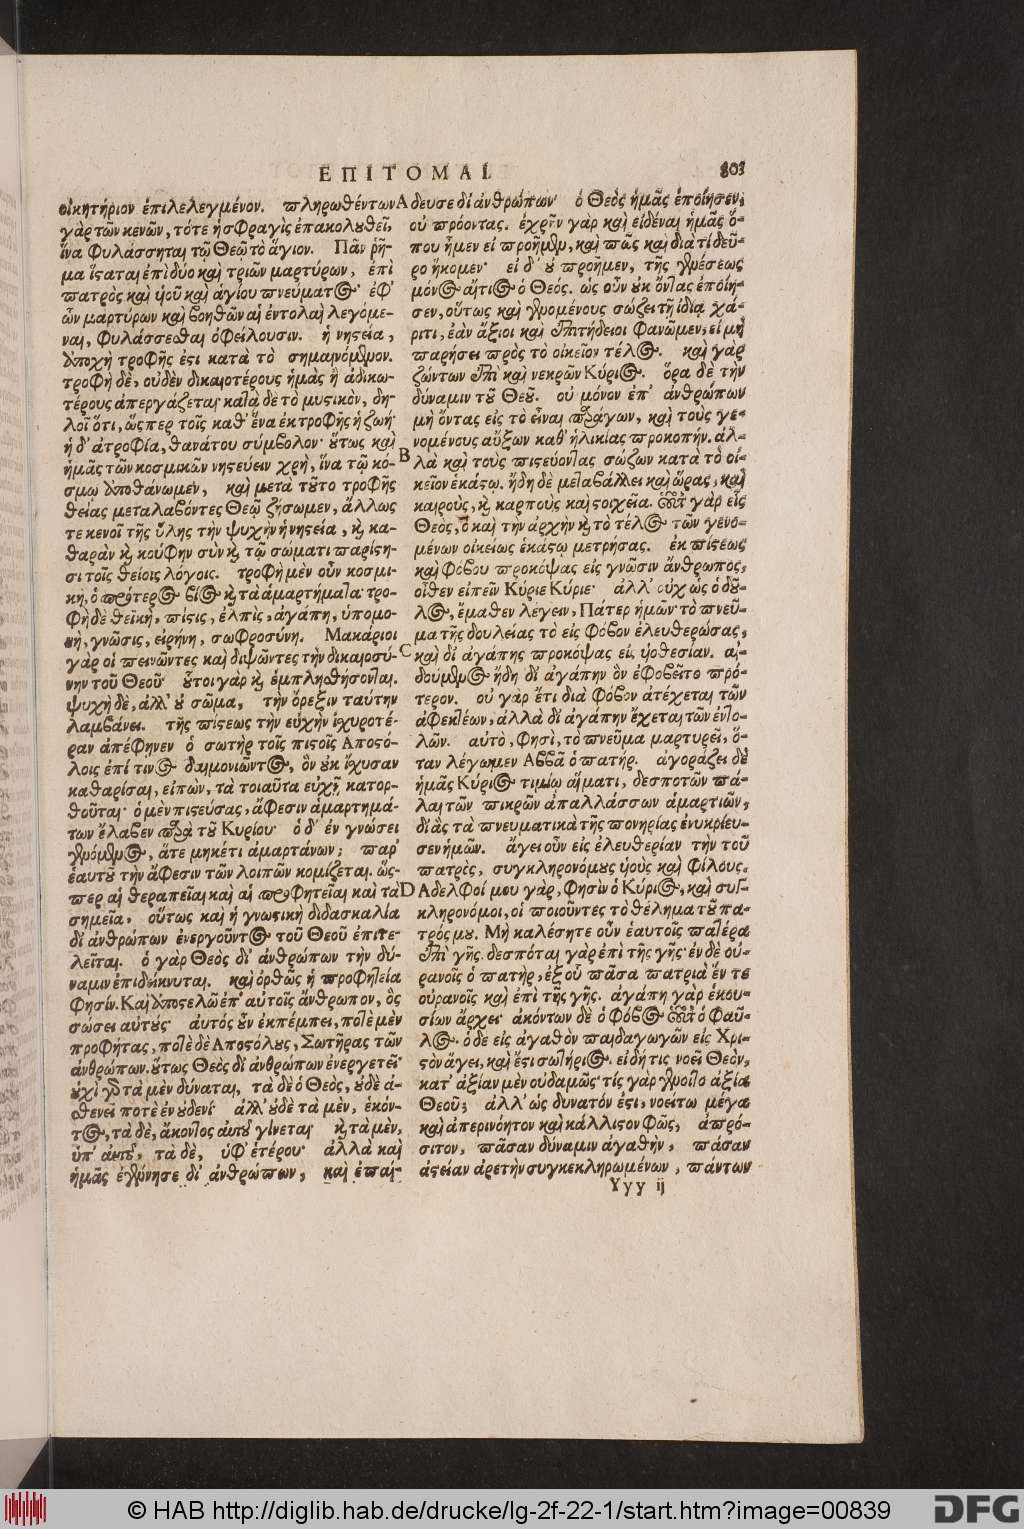 ΕΠΙΤΟΜΑΙ
803
οἰκητήριον ἐπιλελεγμένον. πληρωθέντων
γὰρ τῶν κενῶν, τότε ἡ σφραγὶς ἐπακολουθεῖ,
ἵνα φυλάσσηται τῷ Θεῷ τὸ ἅγιον. Πᾶν ῥῆ-
μα ἵσταται ἐπὶ δύο καὶ τριῶν μαρτύρων, ἐπὶ
πατρὸς καὶ υἱοῦ καὶ ἁγίου πνεύματος· ἐφ'
ὧν μαρτύρων καὶ βοηθῶν αἱ ἐντολαὶ λεγόμε-
ναι, φυλάσσεσθαι ὀφείλουσιν. ἡ νηστεία,
ἀποχὴ τροφῆς ἐστι κατὰ τὸ σημαινόμενον.
τροφὴ δὲ, οὐδὲν δικαιοτέρους ἡμᾶς ἢ ἀδικω-
τέρους ἀπεργάζεται κατὰ δὲ τὸ μυστικὸν, δη-
λοῖ ὅτι, ὥσπερ τοῖς καθ' ἕνα ἐκ τροφῆς ἡ ζωή·
ἡ δ' ἀτροφία, θανάτου σύμβολον· οὕτως καὶ
ἡμᾶς τῶν κοσμικῶν νηστεύειν χρὴ, ἵνα τῷ κό-
σμῳ ἀποθάνωμεν, καὶ μετὰ τοῦτο τροφῆς
θείας μεταλαβόντες Θεῷ ζήσωμεν, ἄλλως
τε κενοῖ τῆς ὕλης τὴν ψυχὴν ἡ νηστεία, καὶ κα-
θαρὰν καὶ κούφην σὺν καὶ τῷ σώματι παρίστη-
σι τοῖς θείοις λόγοις. τροφὴ μὲν οὖν κοσμι-
κὴ, ὁ πρότερος βίος καὶ τὰ ἁμαρτήματα· τρο-
φὴ δὲ θεϊκὴ, πίστις, ἐλπὶς, ἀγάπη, ὑπομο-
νὴ, γνῶσις, εἰρήνη, σωφροσύνη. Μακάριοι
γὰρ οἱ πεινῶντες καὶ διψῶντες τὴν δικαιοσύ-
νην τοῦ Θεοῦ· οὗτοι γὰρ καὶ ἐμπλησθήσονται.
ψυχὴ δὲ, ἀλλ' οὐ σῶμα, τὴν ὄρεξιν ταύτην
λαμβάνει. τῆς πίστεως τὴν εὐχὴν ἰσχυροτέ-
ραν ἀπέφηνεν ὁ σωτὴρ τοῖς πιστοῖς Αποστό-
λοις ἐπί τινος δαιμονιῶντος, ὃν οὐκ ἴσχυσαν
καθαρίσαι, εἰπών, τὰ τοιαῦτα εὐχῇ κατορ-
θοῦται· ὁ μὲν πιστεύσας, ἄφεσιν ἁμαρτημά-
των ἔλαβεν παρὰ τοῦ Κυρίου· ὁ δ' ἐν γνώσει
γενόμενος, ἅτε μηκέτι ἁμαρτάνων; παρ'
ἑαυτοῦ τὴν ἄφεσιν τῶν λοιπῶν κομίζεται. ὥσ-
περ αἱ θεραπεῖαι καὶ αἱ προφητεῖαι καὶ τὰ
σημεῖα, οὕτως καὶ ἡ γνωστικὴ διδασκαλία
δι' ἀνθρώπων ἐνεργοῦντος τοῦ Θεοῦ ἐπιτε-
λεῖται. ὁ γὰρ Θεὸς δι' ἀνθρώπων τὴν δύ-
ναμιν ἐπιδείκνυται. καὶ ὀρθῶς ἡ προφητεία
φησίν. Καὶ ἀποστελῶ ἐπ' αὐτοῖς ἄνθρωπον, ὃς
σώσει αὐτούς· αὐτὸς οὖν ἐκπέμπει, ποτὲ μὲν
προφήτας, ποτὲ δὲ Αποστόλους, Σωτῆρας τῶν
ἀνθρώπων. οὕτως Θεὸς δι' ἀνθρώπων ἐνεργετεῖ·
οὐχὶ γὰρ τὰ μὲν δύναται, τὰ δὲ ὁ Θεὸς, οὐδὲ ἀ-
σθενεῖ ποτὲ ἐν οὐδενί· ἀλλ' οὐδὲ τὰ μὲν, ἑκόν-
τος, τὰ δὲ, ἄκοντος αὐτοῦ γίνεται· καὶ τὰ μὲν,
ὑπ' αὐτοῦ, τὰ δὲ, ὑφ' ἑτέρου· ἀλλὰ καὶ
ἡμᾶς ἐγέννησε δι' ἀνθρώπων, καὶ ἐπαί-
A δευσε δι' ἀνθρώπων· ὁ Θεὸς ἡμᾶς ἐποίησεν,
οὐ προόντας. ἐχρῆν γὰρ καὶ εἰδέναι ἡμᾶς ὅ-
που ἦμεν εἰ προῆμεν, καὶ πῶς καὶ διατί δεῦ-
ρο ἥκομεν· εἰ δ' οὐ προῆμεν, τῆς γενέσεως
μόνος αἴτιος ὁ Θεός. ὡς οὖν οὐκ ὄντας ἐποίη-
σεν, οὕτως καὶ γενομένους σώζει τῇ ἰδίᾳ χά-
ριτι, ἐὰν ἄξιοι καὶ ἐπιτήδειοι φανῶμεν, εἰ μὴ
παρήσει πρὸς τὸ οἰκεῖον τέλος. καὶ γὰρ
ζώντων ἐπὶ καὶ νεκρῶν Κύριος. ὅρα δὲ τὴν
δύναμιν τοῦ Θεοῦ. οὐ μόνον ἐπ' ἀνθρώπων
μὴ ὄντας εἰς τὸ εἶναι παράγων, καὶ τοὺς γε-
νομένους αὔξων καθ' ἡλικίας προκοπήν. ἀλ-
B λὰ καὶ τοὺς πιστεύοντας σώζων κατὰ τὸ οἰ-
κεῖον ἑκάστῳ. ἤδη δὲ μεταβάλλει καὶ ὥρας, καὶ
καιροὺς, καὶ καρποὺς καὶ στοιχεῖα. οὗτος γὰρ εἷς
Θεὸς, ὁ καὶ τὴν ἀρχὴν καὶ τὸ τέλος τῶν γενο-
μένων οἰκείως ἑκάστῳ μετρήσας. ἐκ πίστεως
καὶ φόβου προκόψας εἰς γνῶσιν ἄνθρωπος,
οἶδεν εἰπεῖν Κύριε Κύριε· ἀλλ' οὐχ ὡς ὁ δοῦ-
λος, ἔμαθεν λέγειν, Πάτερ ἡμῶν· τὸ πνεῦ-
μα τῆς δουλείας τὸ εἰς φόβον ἐλευθερώσας,
C καὶ δι' ἀγάπης προκόψας εἰς υἱοθεσίαν. αἰ-
δούμενος ἤδη δι' ἀγάπην ὃν ἐφοβεῖτο πρό-
τερον. οὐ γὰρ ἔτι διὰ φόβον ἀπέχεται τῶν
ἀφεκτέων, ἀλλὰ δι' ἀγάπην ἔχεται τῶν ἐντο-
λῶν. αὐτὸ, φησὶ, τὸ πνεῦμα μαρτυρεῖ, ὅ-
ταν λέγωμεν Αββᾶ ὁ πατήρ. ἀγοράζει δὲ
ἡμᾶς Κύριος τιμίῳ αἵματι, δεσποτῶν πά-
λαι τῶν πικρῶν ἀπαλλάσσων ἁμαρτιῶν,
δι' ἃς τὰ πνευματικὰ τῆς πονηρίας ἐνυκρίευ-
σεν ἡμῶν. ἄγει οὖν εἰς ἐλευθερίαν τὴν τοῦ
πατρὸς, συγκληρονόμους υἱοὺς καὶ φίλους.
D Αδελφοί μου γὰρ, φησὶν ὁ Κύριος, καὶ συγ-
κληρονόμοι, οἱ ποιοῦντες τὸ θέλημα τοῦ πα-
τρός μου. Μὴ καλέσητε οὖν ἑαυτοῖς πατέρα
ἐπὶ γῆς. δεσπόται γὰρ ἐπὶ τῆς γῆς· ἐν δὲ οὐ-
ρανοῖς ὁ πατὴρ, ἐξ οὗ πᾶσα πατριὰ ἔν τε
οὐρανοῖς καὶ ἐπὶ τῆς γῆς. ἀγάπη γὰρ ἑκου-
σίων ἄρχει· ἀκόντων δὲ ὁ φόβος οὗτος ὁ φαῦ-
λος· ὁ δὲ εἰς ἀγαθὸν παιδαγωγῶν εἰς Χρι-
στὸν ἄγει, καὶ ἔστι σωτήριος. εἰ δή τις νοεῖ Θεὸν,
κατ' ἀξίαν μὲν οὐδαμῶς· τίς γὰρ γένοιτο ἀξία
Θεοῦ; ἀλλ' ὡς δυνατόν ἐστι, νοείτω μέγα
καὶ ἀπερινόητον καὶ κάλλιστον φῶς, ἀπρό-
σιτον, πᾶσαν δύναμιν ἀγαθὴν, πᾶσαν
ἀστείαν ἀρετὴν συγκεκληρωμένων, πάντων
Υγγ ij
© HAB http://diglib.hab.de/drucke/lg-2f-22-1/start.htm?image=00839
DFG